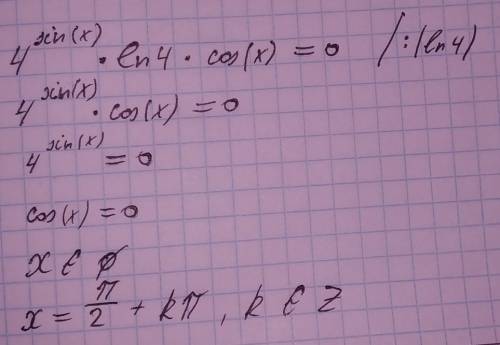 4^sin(x) · ln4 · cos(x) = 0 /:(ln4)
4^sin(x) · cos(x) = 0
4^sin(x) = 0
cos(x) = 0
x ∈ ∅
x = π/2 + kπ, k ∈ Z